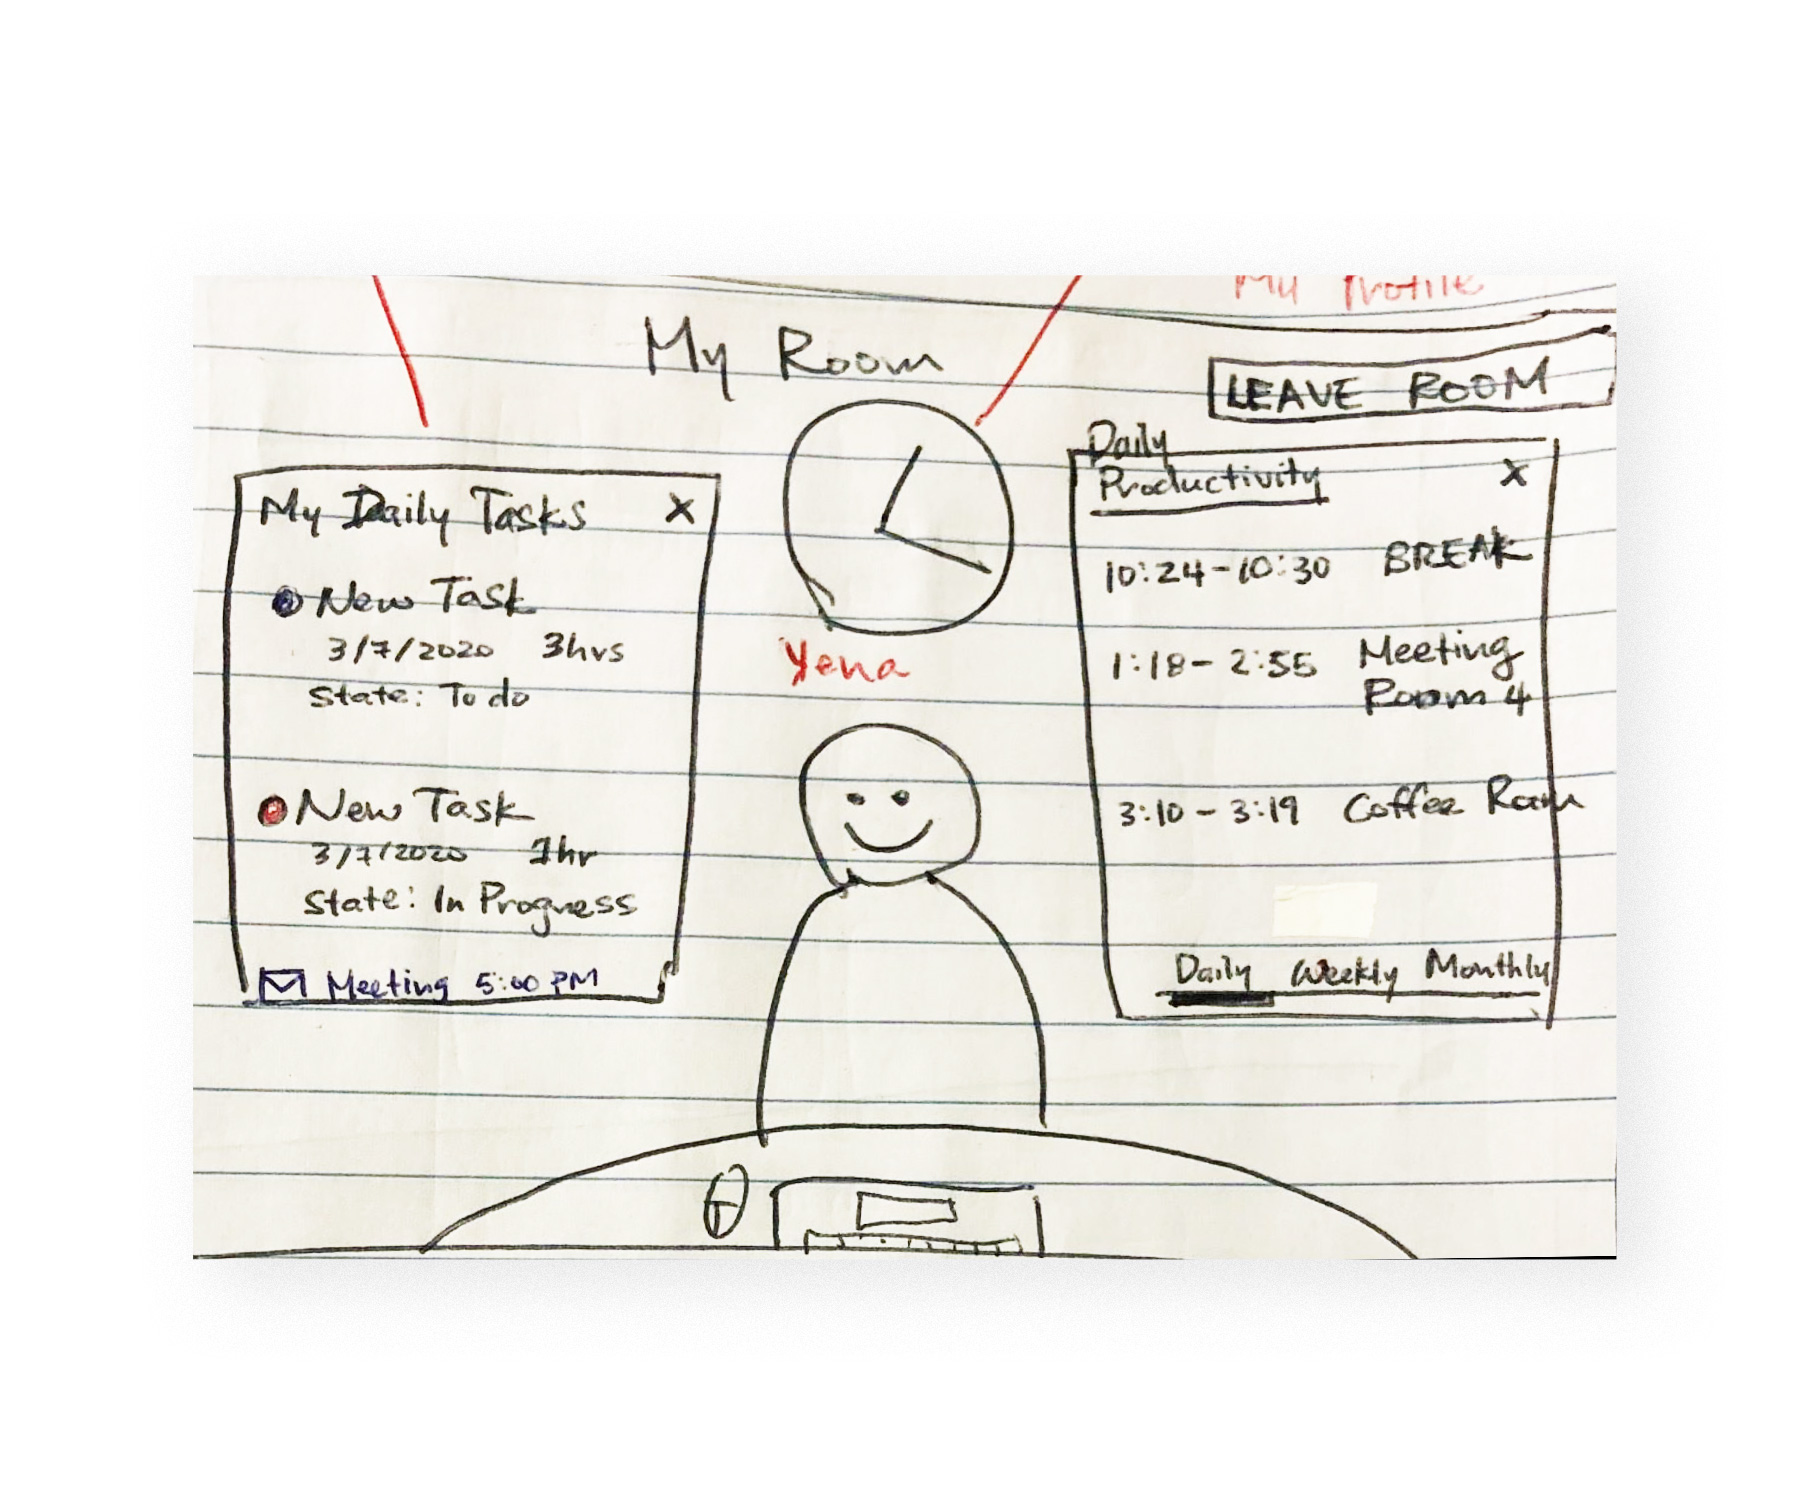 My Profile
My Room
LEAVE ROOM
My Daily Tasks X
New Task
3/7/2020 3hrs
State: To do
New Task
3/7/2020 1hr
State: In Progress
Meeting 5:00 PM
Yena
Daily
Productivity X
10:24-10:30 BREAK
1:18-2:55 Meeting
Room 4
3:10-3:19 Coffee Room
Daily Weekly Monthly